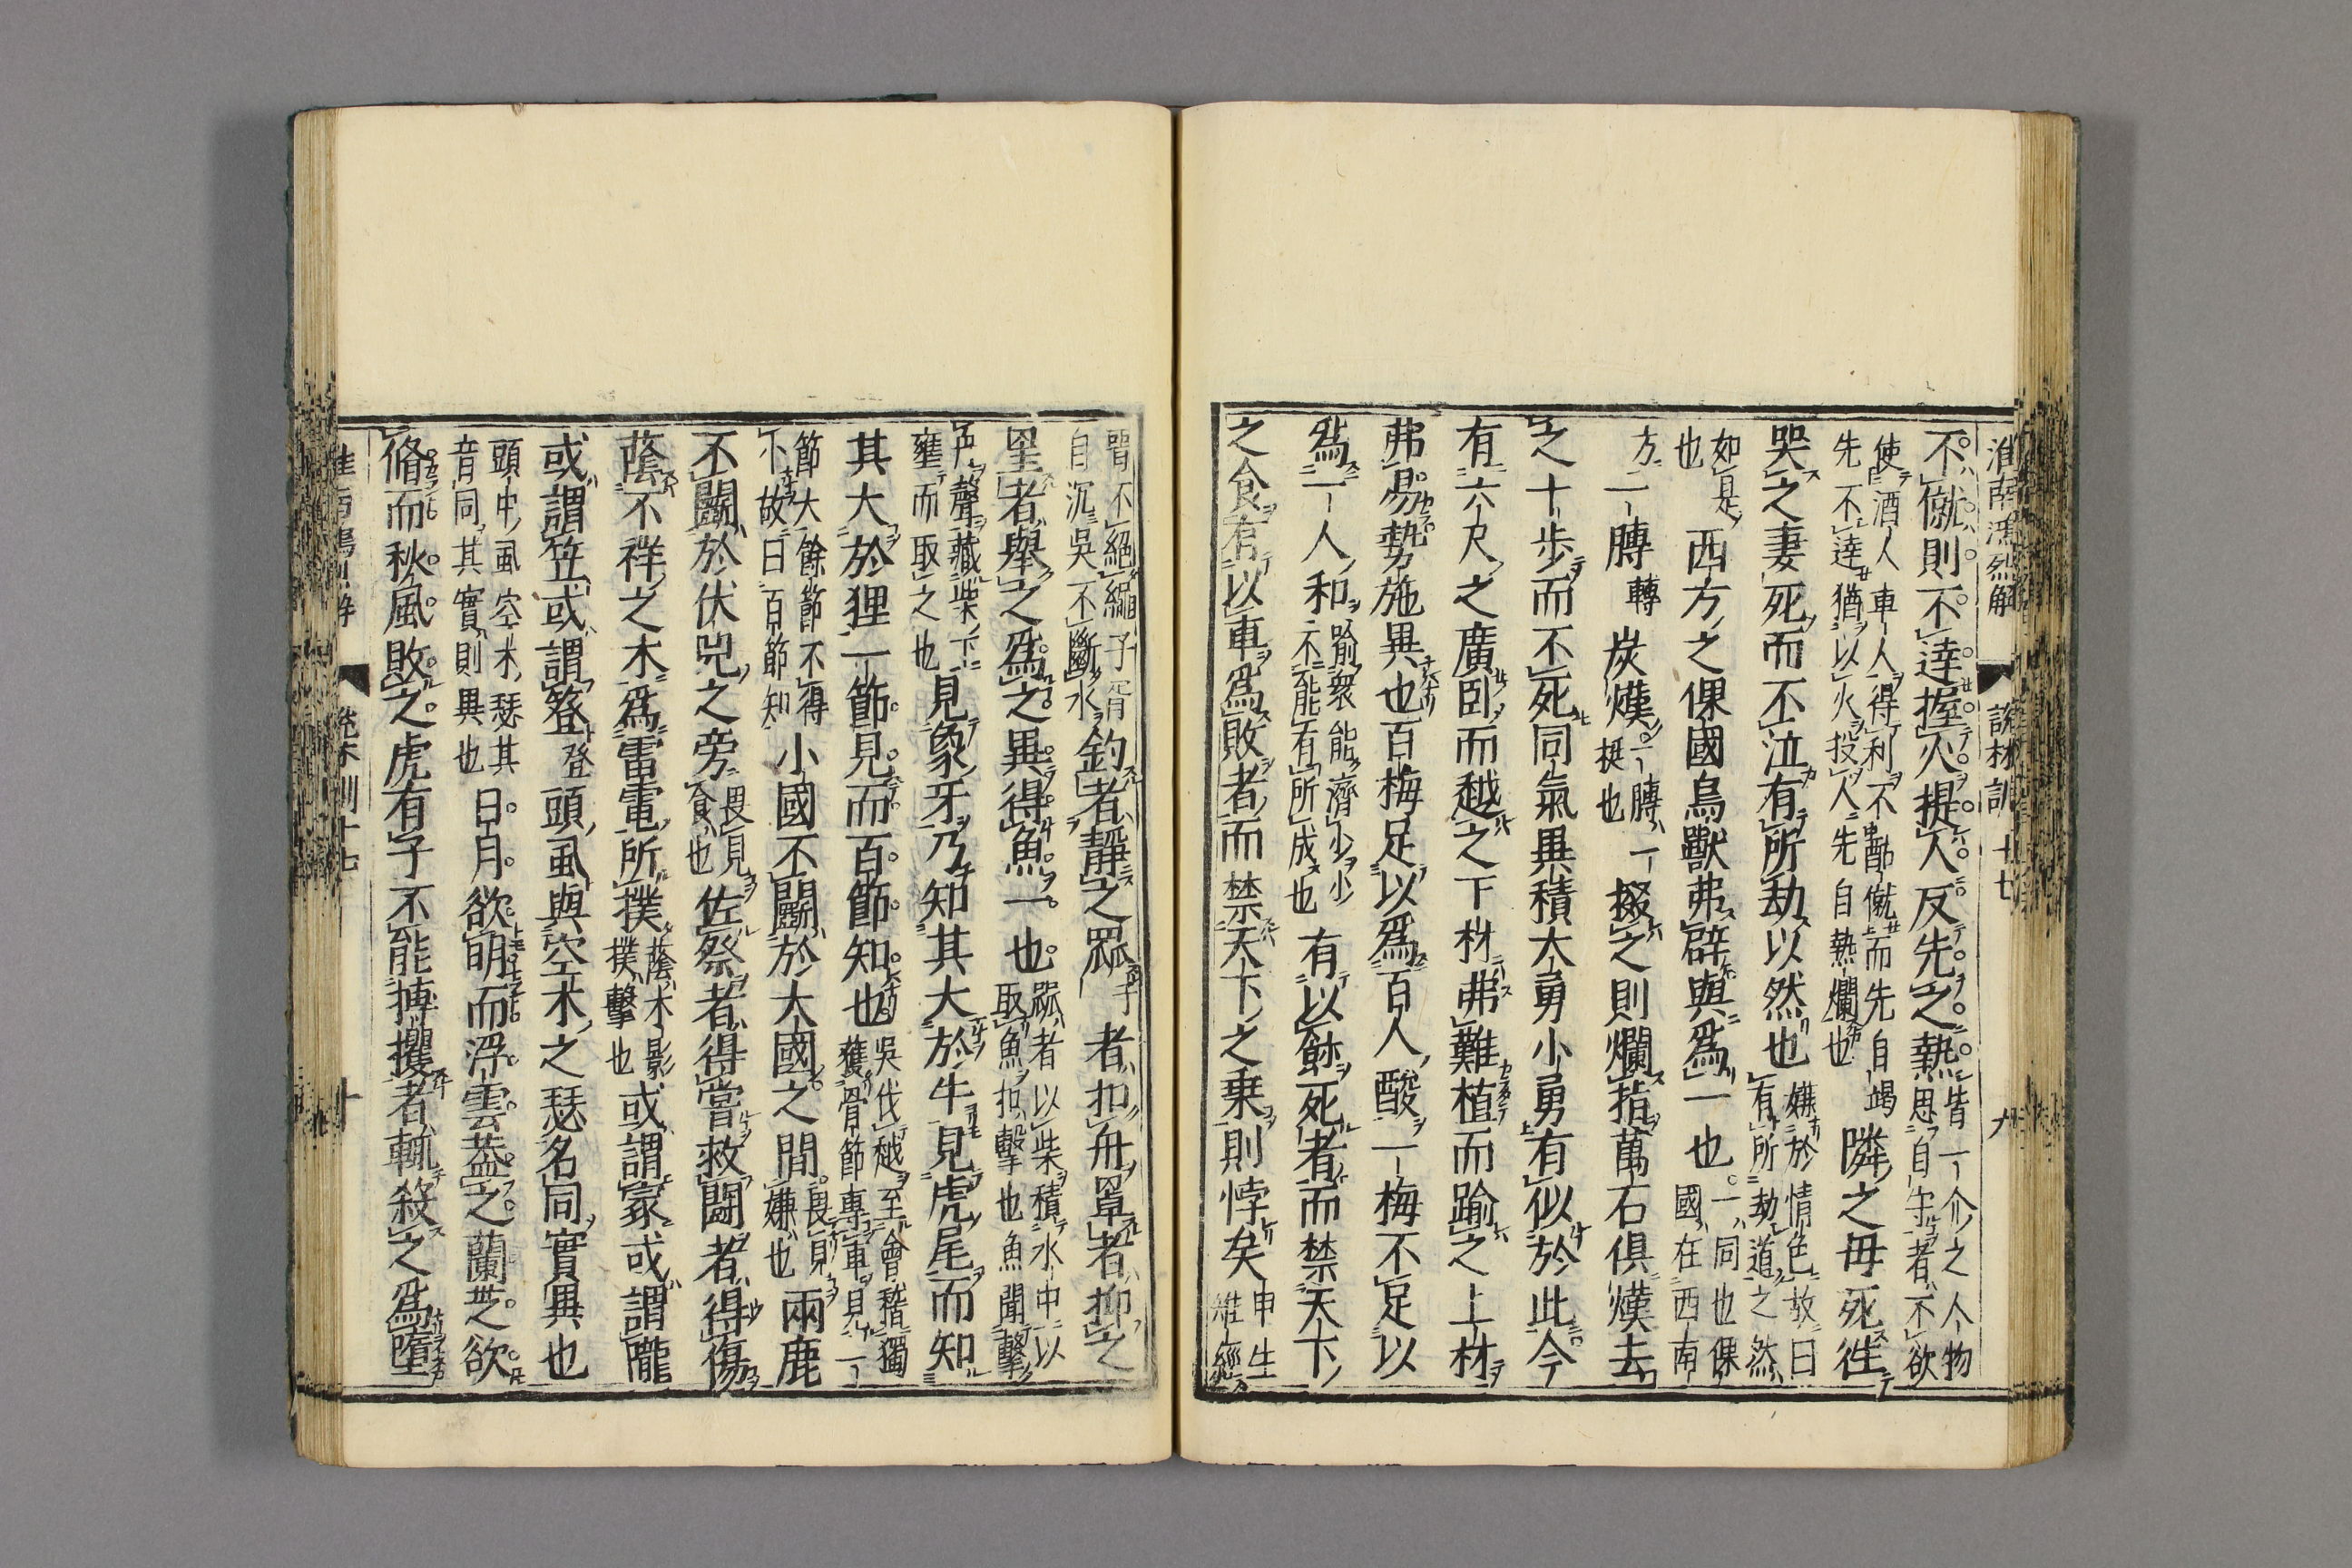 淮南鴻烈解 說林訓 十七 九
不僦則不達握火提人反先之熱 皆一介之人物
思自守者不欲
使酒人車人得利不酤僦而先自竭
先不達猶以火投人先自熱爛也 隣之母死往
哭之妻死而不泣有所劫以然也 嫌於情色故曰
有所劫道之然
如是
也 西方之倮國鳥獸弗辟與爲一也 一同也倮
國在西南
方 一膊 轉 炭熯 一膊一
挺也 掇之則爛指萬石俱熯去
之十步而不死同氣異積大勇小勇有似於此今
有六尺之廣臥而越之下材弗難植而踰之上材
弗易勢施異也百梅足以爲百人酸一梅不足以
爲一人和 喻衆能濟少少
不能有所成也 有以飯死者而禁天下
之食有以車爲敗者而禁天下之乗則悖矣 申生
雉經
晉不絕繩子胥
自沉吳不斷水 釣者靜之罛 者扣舟罩者抑之
罣者舉之爲之異得魚一也 罛者以柴積水中以
取魚扣擊也魚聞擊
舟聲藏柴下
壅而取之也 見象牙乃知其大於牛見虎尾而知
其大於狸一節見而百節知也 吳伐越至會稽獨
獲骨節專車見一
節大餘節不得
不故曰百節知 小國不鬭於大國之間 畏見
嫌也 兩鹿
不鬭於伏兕之旁 畏見
食也 佐祭者得嘗救鬭者得傷
蔭不祥之木爲雷電所撲 蔭木影
撲擊也 或謂冢或謂隴
或謂笠或謂簦 登 頭虱與空木之瑟名同實異也
頭中虱空木瑟其
音同其實則異也 日月欲明而浮雲蓋之蘭芝欲
脩而秋風敗之虎有子不能搏攫者輒殺之爲墮
說林訓十七 十